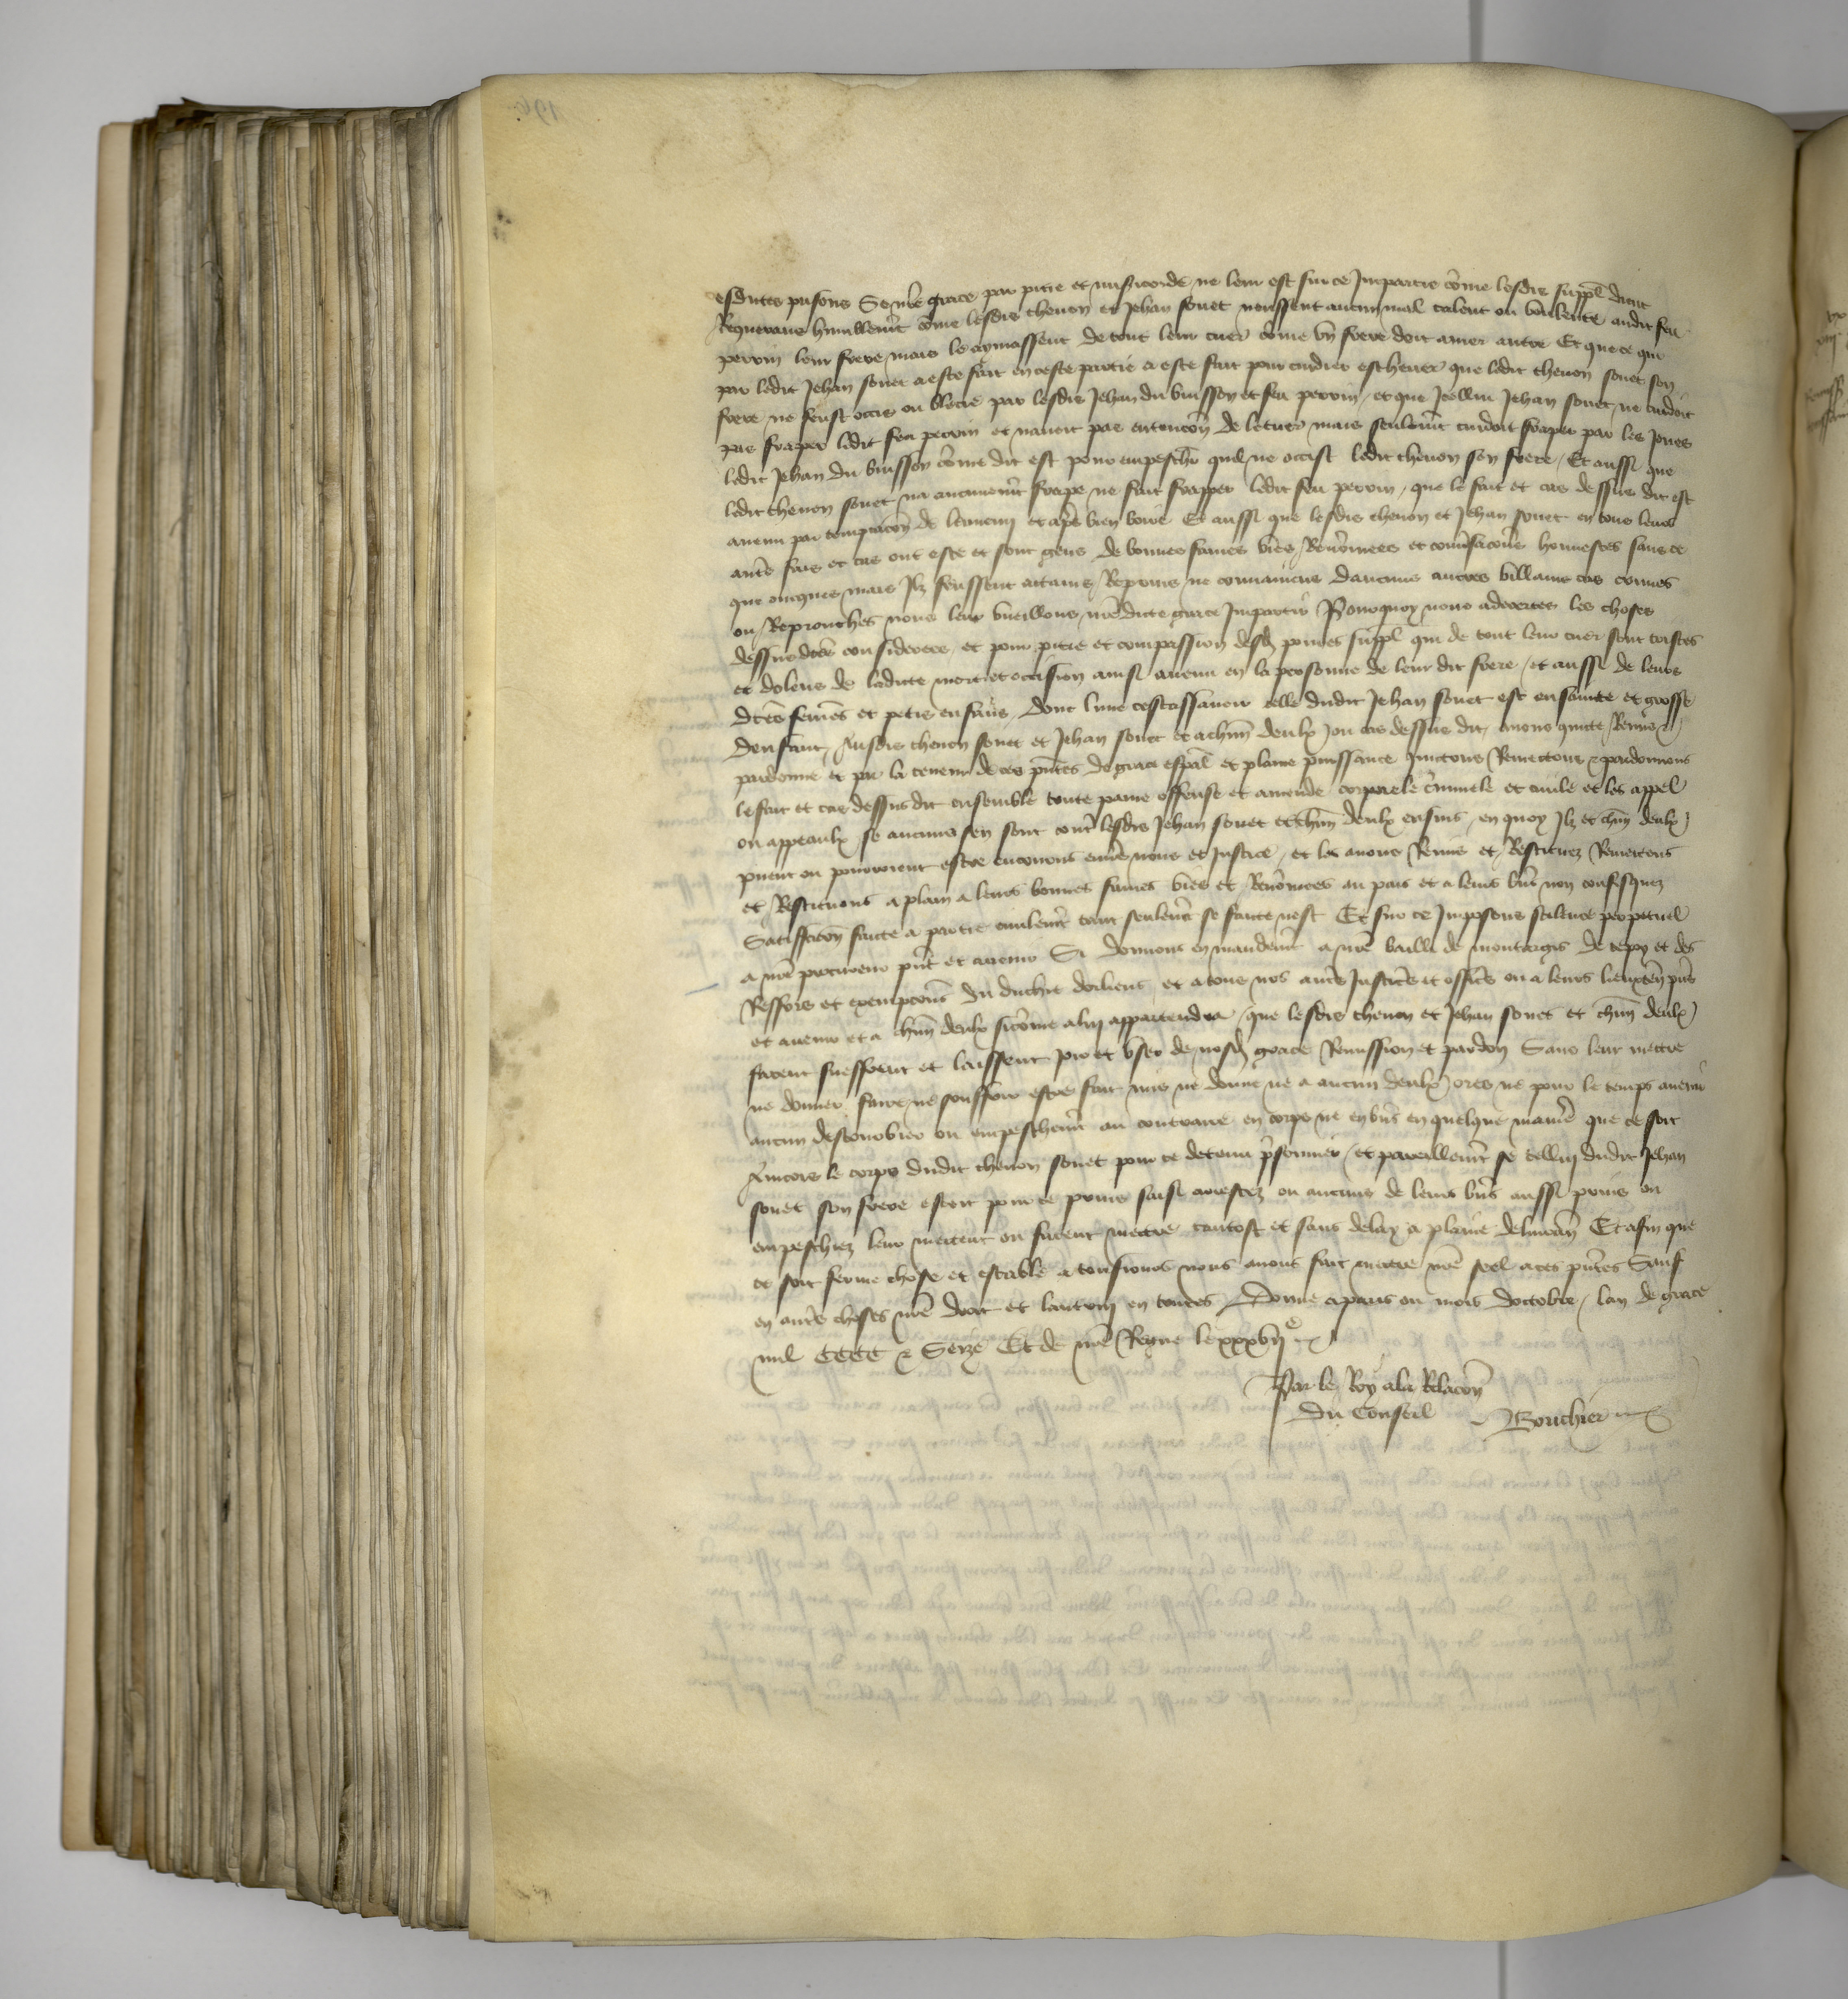 esdictes prisons Se nre grace par pitie et misericorde ne leur est sur ce Impartie come lesdis suppl dient
Requerans humblemt come lesdis thenon et Jehan sonet neussent aucun mal talent ou voulente audit feu
perrin leur frere mais le aymassent de tout leur cuer come vn frere doit amer autre Et que ce qui
par ledit Jehan sonet a este fait en ceste partie a este fait pour cuidier eschever que ledit thenon sonet son
frere ne feust occis ou blecie par lesdis Jehan du buisson et feu perrin / et que Icellui Jehan sonet ne cuidoit
pas fraper ledit feu perrin et navoit pas entencon de le tuer mais seulemt cuidoit fraper par les Joues
ledit Jehan du buisson come dit est pour empeschr quil ne occist ledit thenon son frere / Et aussi que
ledit thenon sonet na aucunemt frape ne fait frapper ledit feu perrin / que le fait et cas dessus dit est
avenu par temptacon de lennemi et apres bien boire Et aussi que lesdis thenon et Jehan sonet en tous leurs
autres fais et cas ont este et sont gens de bonnes fames vies Renomees et conversacons honnestes sans ce
que oncques mais Ilz feussent attains Reprins ne convaincus daucuns autres villains cas crimes
ou Reprouches nous leur vueillons nredicte grace Impartir Pourquoy nous adcertes les choses
dessusdctes considerees et pour pitie et compassion desd povres suppl qui de tout leur cuer sont tristes
et dolens de ladicte mort et occision ainsi avenu en la personne de leur dit frere / et aussi de leurs
dctes femes et petis enfans dont lune cestassavoir celle dudit Jehan sonet est ensainte et grosse
denfant / Ausdis thenon sonet et Jehan sonet et a chun deulx ou cas dessus dit avons quitte Remis et
pardonne et par la teneur de ces pntes de grace espal et plaine puissance quictons Remectons et pardonnons
le fait et cas dessus dit ensemble toute paine offense et amende corporele criminele et civile et les appel
ou appeaulx se aucuns sen sont contre lesdis Jehan sonet et chun deulx ensuis en quoy Ilz et chun deulx
peuent ou pourroient estre encourus envers nous et Justice / et les avons Remis et Restituez Remectons
et Restituons a plain a leurs bonnes fames vies et Renomees au pais et a leurs biens non confisquez
Satisffacon faicte a partie civilemt tant seulemt se faicte nest Et sur ce Imposons scilence perpetuel
a nre procureur pnt et avenir Si donnons en mandemt a nre bailli de montargis de cepoy et des
Ressors et exempcons du duchie dorliens et a tous nos autres Justiciers et officiers ou a leurs lieuxten pns
et avenir et a chun deulx sicome a lui appartendra / que lesdis thenon et Jehan sonet et chun deulx
facent sueffrent et laissent joir et user de nosd grace Remission et pardon Sans leur mettre
ne donner faire ne souffrir estre fait mis ne donne ne a aucun deulx ores ne pour le temps avenir
aucun destourbier ou empeschemt au contraire en corps ne en biens en quelque maniere que ce soit
Aincois le corps dudit thenon sonet pour ce detenu prisonnier / et pareillemt se cellui dudit Jehan
sonet son frere estoit pour ce prins saisi arrestez ou aucuns de leurs biens aussi prins ou
empeschiez leur mectent ou facent mettre tantost et sans delay a plaine delivrance Et afin que
ce soit ferme chose et estable a tousiours nous avons fait mettre nre seel a ces pntes Sauf
en autres choses nre droit et lautrui en toutes Donne a paris ou mois doctobre / lan de grace
mil CCCC et Seize Et de nre Regne le xxxvije
Par le Roy a la Relacon
du Conseil Bouchier